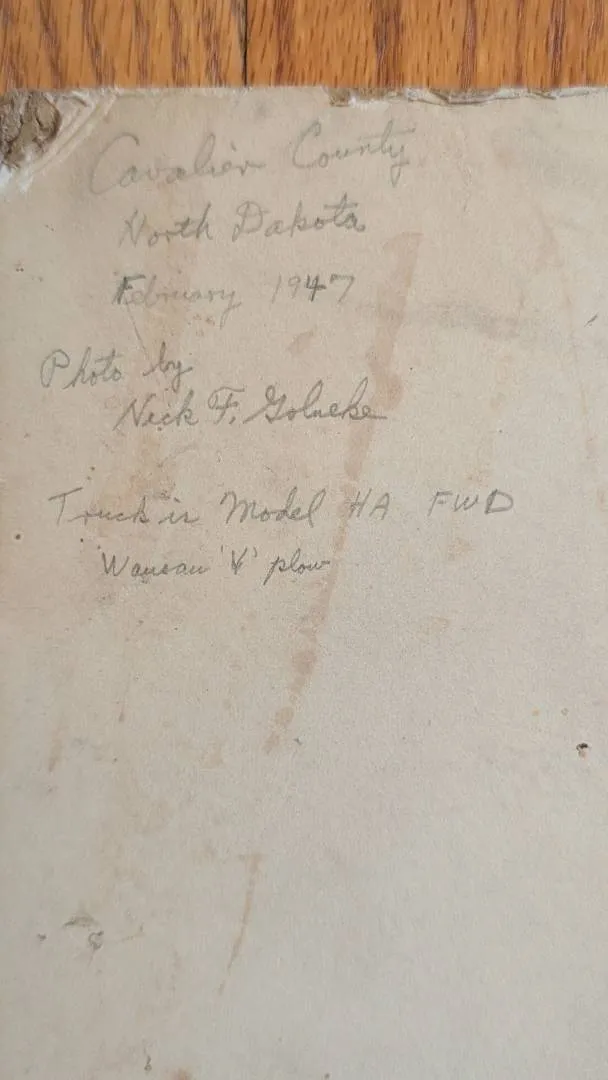 Cavalier County
North Dakota
February 1947
Photo by
Nick F.
Truck is Model HA FWD
Wausau 'V' plow